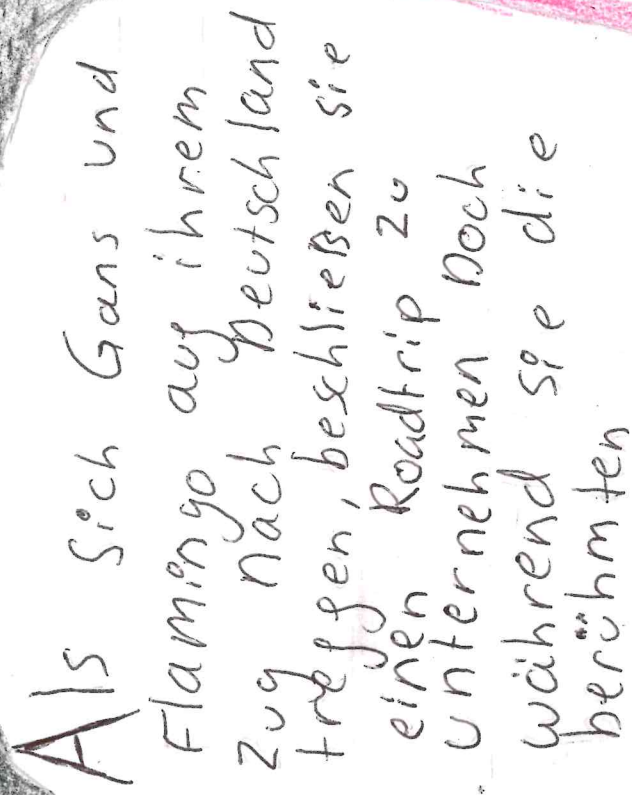 Als sich Gans und
Flamingo auf ihrem
Zug nach Deutschland
treffen, beschließen sie
einen Roadtrip zu
unternehmen Doch
während sie die
berühmten